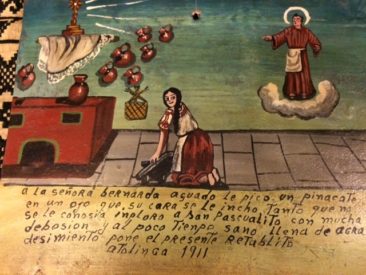 a la señora bernarda aguado le pico un pinacate
en un ojo que su cara se le incho Tanto que no
se le conosia inploro a San Pascualito con mucha
debosion y al poco Tienpo sano llena de agra
desimiento pone el presente Retablito
atolinga 1911